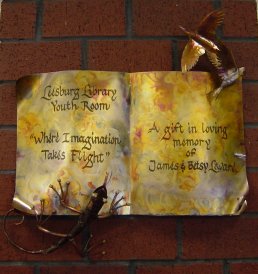 Leesburg Library
Youth Room
"Where Imagination
Takes Flight"
A gift in loving
memory
of
James & Betsy